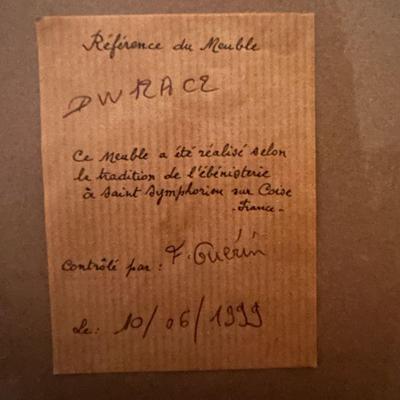 Référence du Meuble
DWRACE
Ce Meuble a été réalisé selon
la tradition de l'ébénisterie
à Saint Symphorien sur Coise
-France-
Contrôlé par : F. Guérin
Le : 10/06/1999